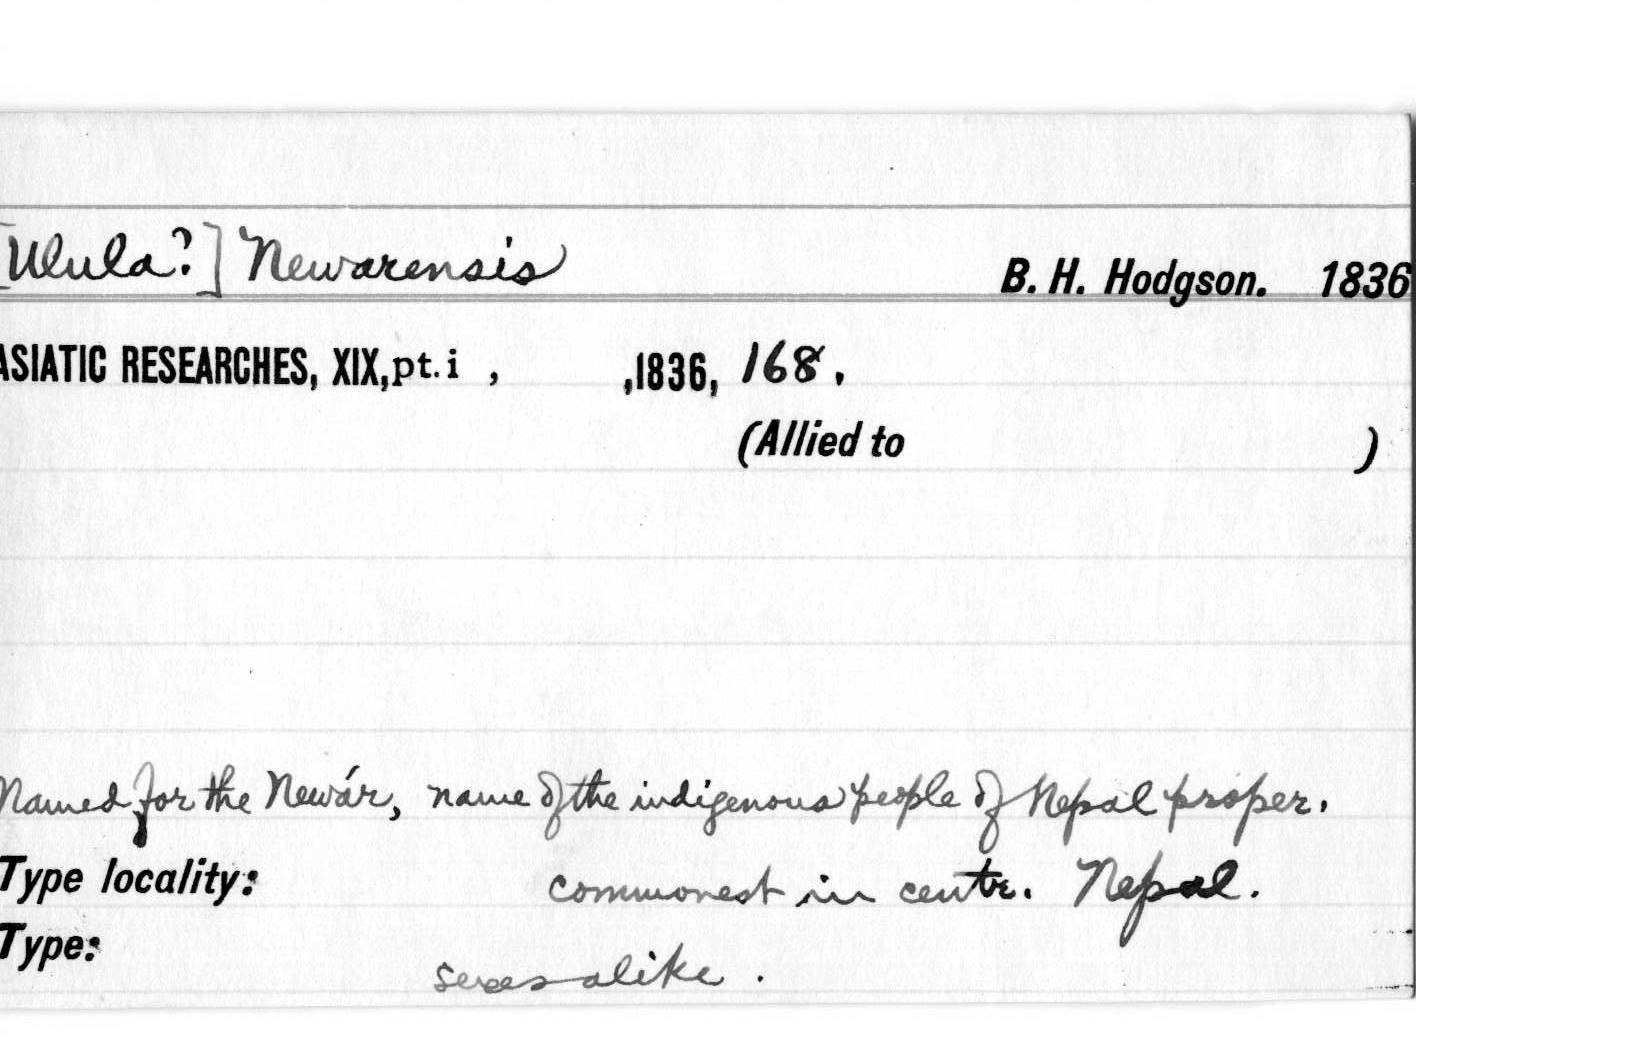 [Ulula?] Newarensis B. H. Hodgson. 1836
ASIATIC RESEARCHES, XIX, pt. i , ,1836, 168.
(Allied to )
Named for the Newár, name of the indigenous people of Nepal proper.
Type locality: commonest in centr. Nepal.
Type:
sexes alike.